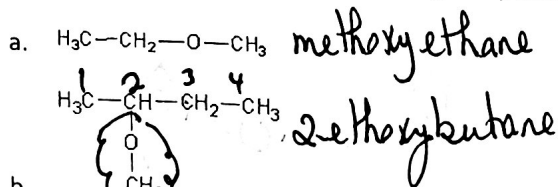 a. H₃C—CH₂—O—CH₃ methoxyethane
1 2 3 4
H₃C—CH—CH₂—CH₃ 2-ethoxybutane
O
b. CH₂